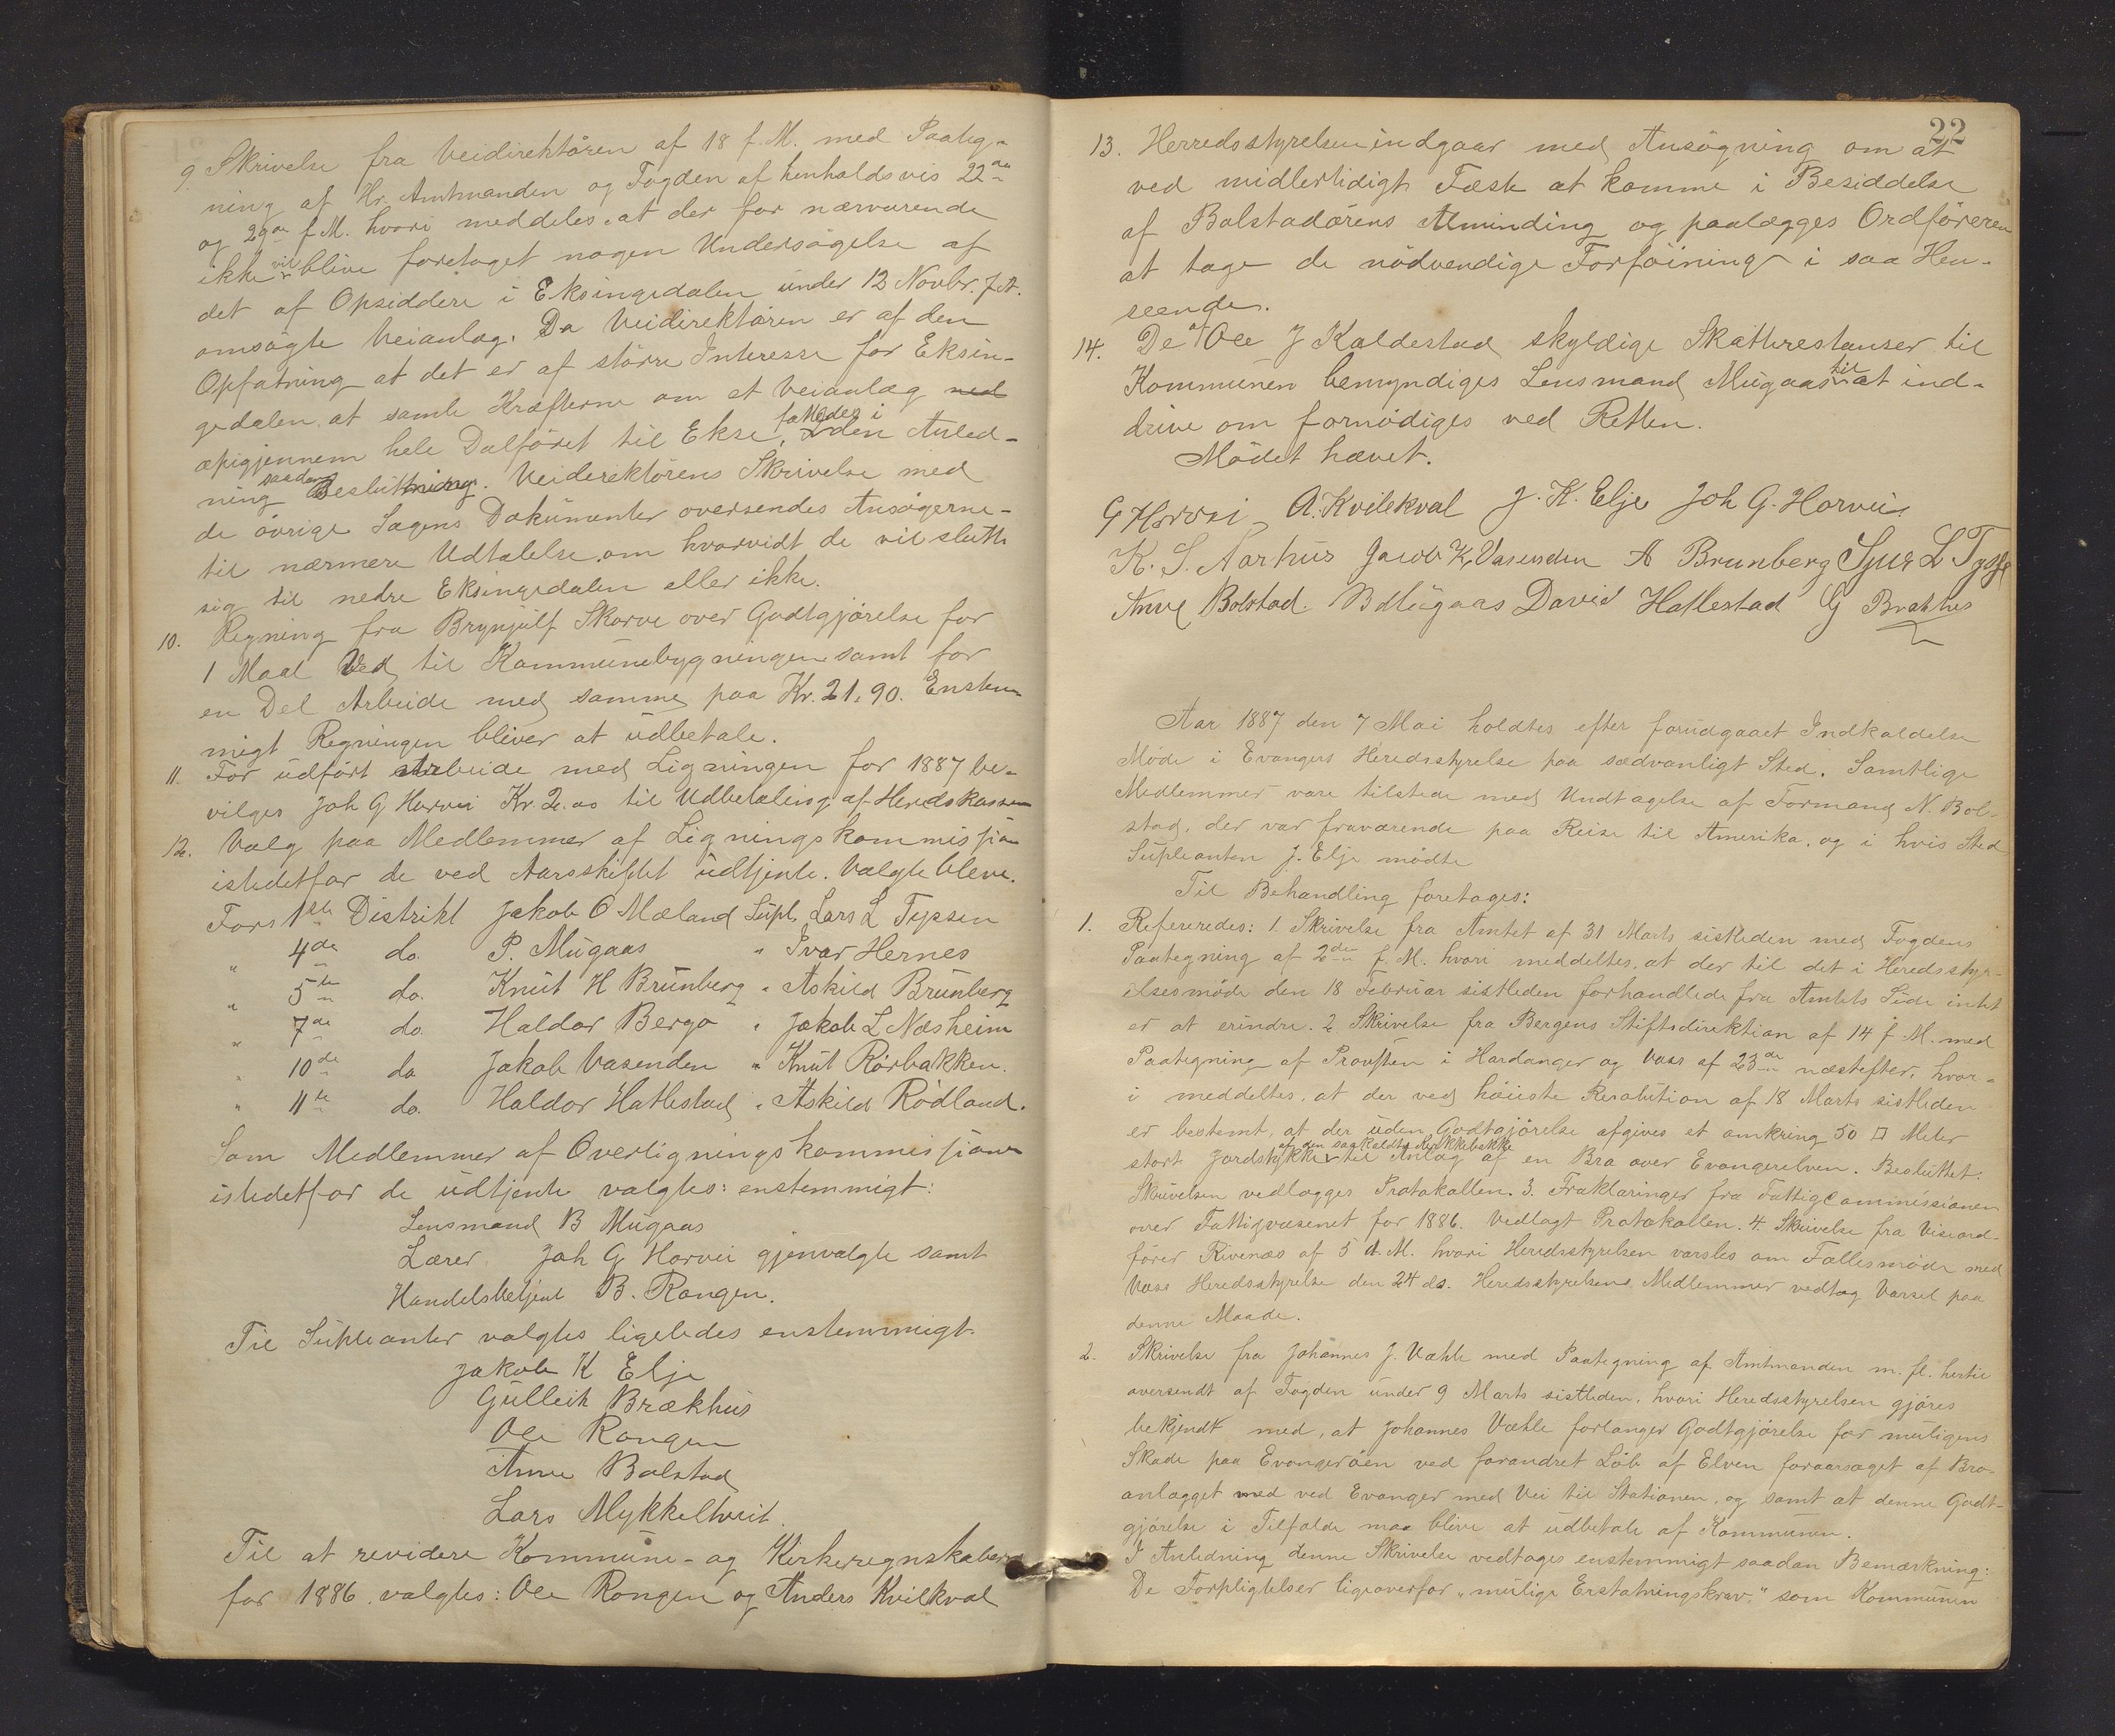 9. Skrivelse fra Veidirektören af 18 f. M. med Paateg-
ning af Hr. Amtmanden og Fogden af henholdsvis 22de
og 29de f. M. hvori meddeles at der for nærværende
ikke vil blive foretaget nogen Undersögelse af
det af Opsiddere i Eksingedalen under 12 Novbr. f. A.
omsögte Veianlæg. Da Veidirektören er af den
Opfatning at det er af större Interesse for Eksin-
gedalen at samle Kræfterne om et Veianlæg ned
opigjennem hele Dalföret til Ekse, fattedes i den Anled-
ning saadan Beslutning. Veidirektörens Skrivelse med
de övrige Sagens Dokumenter oversendes Ansögerne
til nærmere Udtalelse om hvorvidt de vil slutte
sig til nedre Eksingedalen eller ikke.
10. Regning fra Brynjulf Skorve over Godtgjörelse for
1 Maal Ved til Kommunebygningen samt for
en Del Arbeide med samme paa Kr. 21,90. Enstem-
migt Regningen bliver at udbetale.
11. For udfört Arbeide med Ligningen for 1887 be-
vilges Joh G Horvei Kr. 2.00 til Udbetaling af Herredskassen
12. Valg paa Medlemmer af Ligningskommissjon
istedetfor de ved Aarsskiftet udtjente. Valgte bleve.
For 1ste Distrikt Jakob O Mæland Supl. Lars L Tyssen
" 4de do. P. Mügaas " Ivar Hernes
" 5te do. Knut H Brunberg " Askild Brunberg
" 7de do. Haldor Bergo " Jakob L Næsheim
" 10de do Jakob Vasenden " Knut Rörbakken.
" 11te do. Haldor Hatlestad " Askild Rödland.
Som Medlemmer af Overligningskommissjonen
istedetfor de udtjente valgtes: enstemmigt:
Lensmand B Mügaas
Lærer Joh G Horvei gjenvalgte samt
Handelsbetjent B. Rongen.
Til Supleanter valgtes ligeledes enstemmigt.
Jakob K Elje
Gulleik Brækhus
Ole Rongen
Anve Bolstad
Lars Mykkeltveit.
Til at revidere Kommune- og Kirkeregnskaberne
for 1886 valgtes: Ole Rongen og Anders Kvilekval
22
13. Herredsstyrelsen indgaar med Ansögning om at
ved midlertidigt Fæste at komme i Besiddelse
af Bolstadörens Alminding og paalægges Ordföreren
at tage de nödvendige Forföininger i saa Hen-
seende.
14. De af Ole J Kaldestad skyldige Skatterestanser til
Kommunen bemyndiges Lensmand Mügaas til at ind-
drive om fornödiges ved Retten.
Mödet hævet.
G Horvei A. Kvilekval J. K. Elje Joh G. Horvei
K. S. Aarhus Jacob K. Vasenden A Brunberg Sjur L Tysse
Anve Bolstad. B Mügaas David Hatlestad G Brækhus
Aar 1887 den 7 Mai holdtes efter forudgaaet Indkaldelse
Möde i Evangers Heredsstyrelse paa sædvanligt Sted. Samtlige
Medlemmer vare tilstede med Undtagelse af Formand N. Bol-
stad, der var fraværende paa Reise til Amerika, og i hvis Sted
Supleanten J. Elje mödte
Til Behandling foretoges:
1. Refereredes: 1. Skrivelse fra Amtet af 31 Marts sistleden med Fogdens
Paategning af 2den f. M. hvori meddeltes, at der til det i Heredsstyr-
elsesmöde den 18 Februar sistleden forhandlede fra Amtets Side intet
er at erindre. 2 Skrivelse fra Bergens Stiftsdirektion af 14 f. M. med
Paategning af Provsten i Hardanger og Voss af 23de næstefter, hvor-
i meddeltes, at der ved höieste Resolution af 18 Marts sistleden
er bestemt, at der uden Godtgjörelse afgives et omkring 50 □ Meter
stort Jordstykke af den saakaldte Klokkebakke til Anlæg af en Bro over Evangerelven. Besluttet:
Skrivelsen vedlægges Protokollen. 3. Fraklaringer fra Fattigcommissionen
over Fattigvæsenet for 1886. Vedlagt Protokollen. 4. Skrivelse fra Viseord-
förer Rivenæs af 5 d. M. hvori Heredsstyrelsen varsles om Fællesmöde med
Voss Heredsstyrelse den 24 ds. Heredsstyrelsens Medlemmer vedtog Varsel paa
denne Maade.
2. Skrivelse fra Johannes J. Væhle med Paategning af Amtmanden m. fl. hertil
oversendt af Fogden under 9 Marts sistleden, hvori Heredsstyrelsen gjöres
bekjendt med, at Johannes Væhle forlanger Godtgjörelse for muligens
Skade paa Evangeröen ved forandret Löb af Elven foraarsaget af Bro-
anlægget med ved Evanger med Vei til Stationen, og samt at denne Godt-
gjörelse i Tilfælde maa blive at udbetale af Kommunen.
I Anledning denne Skrivelse vedtoges enstemmigt saadan Bemærkning:
De Forpligtelser ligeoverfor "mulige Erstatningskrav" som Kommunen